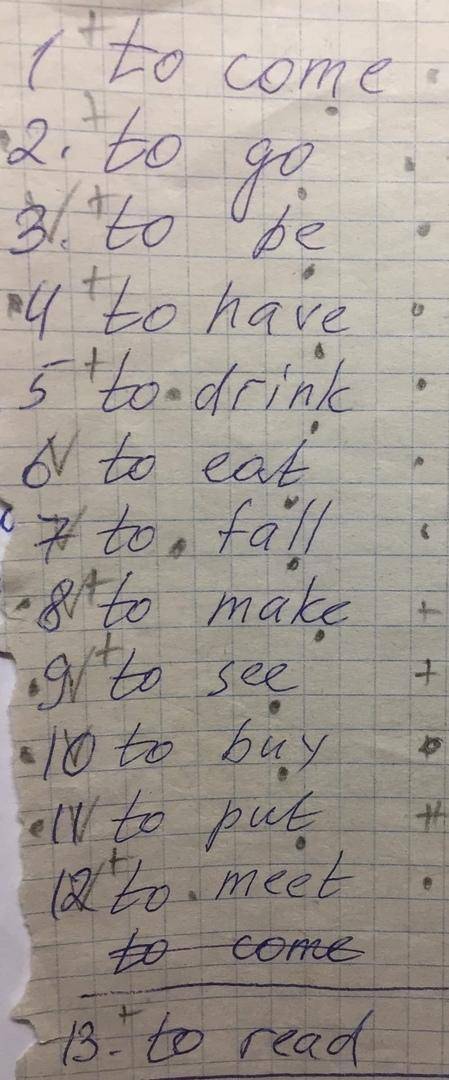 1 to come
2. to go
3. to be
4 to have
5 to drink
6 to eat
7 to fall
8 to make
9 to see
10 to buy
11 to put
12 to meet
to come
13. to read